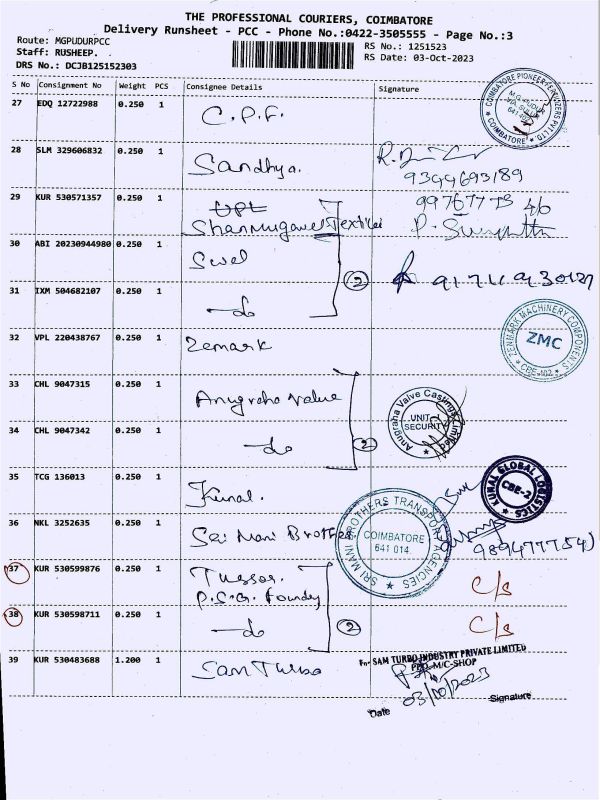 THE PROFESSIONAL COURIERS, COIMBATORE
Delivery Runsheet - PCC - Phone No.:0422-3505555 - Page No.:3
Route: MGPUDURPCC
Staff: RUSHEEP.
DRS No.: DCJB125152303
RS No.: 1251523
RS Date: 03-Oct-2023
S No Consignment No Weight PCS Consignee Details Signature
27 EDQ 12722988 0.250 1 C.P.F.
COIMBATORE PIONEER FERTILIZERS PVT LTD.
COIMBATORE
28 SLM 329606832 0.250 1 Sandhya.
9344693189
29 KUR 530571357 0.250 1 UPL
Shanmugavel Textiles
30 ABI 20230944980 0.250 1 Suel
2
31 IXM 504682107 0.250 1 -do
32 VPL 220438767 0.250 1 Zemark
ZENMARK MACHINERY COMPONENTS
ZMC
33 CHL 9047315 0.250 1 Anugraha Value
Anugraha Valve Castings Limited
UNIT
SECURITY
34 CHL 9047342 0.250 1 -do
2
35 TCG 136013 0.250 1 Kunal.
KUNAL GLOBAL LOGISTICS
CBE-2
36 NKL 3252635 0.250 1 Sri Mani Brothers
SRI MANI BROTHERS TRANSPORT AGENCIES
COIMBATORE
641 014
37 KUR 530599876 0.250 1 Tussor.
P.S.G. Foundry
C/s
38 KUR 530598711 0.250 1 -do
2
C/s
39 KUR 530483688 1.200 1 Sam Turbo
For SAM TURBO INDUSTRY PRIVATE LIMITED
PPD-M/C-SHOP
03/10/2023
Date Signature